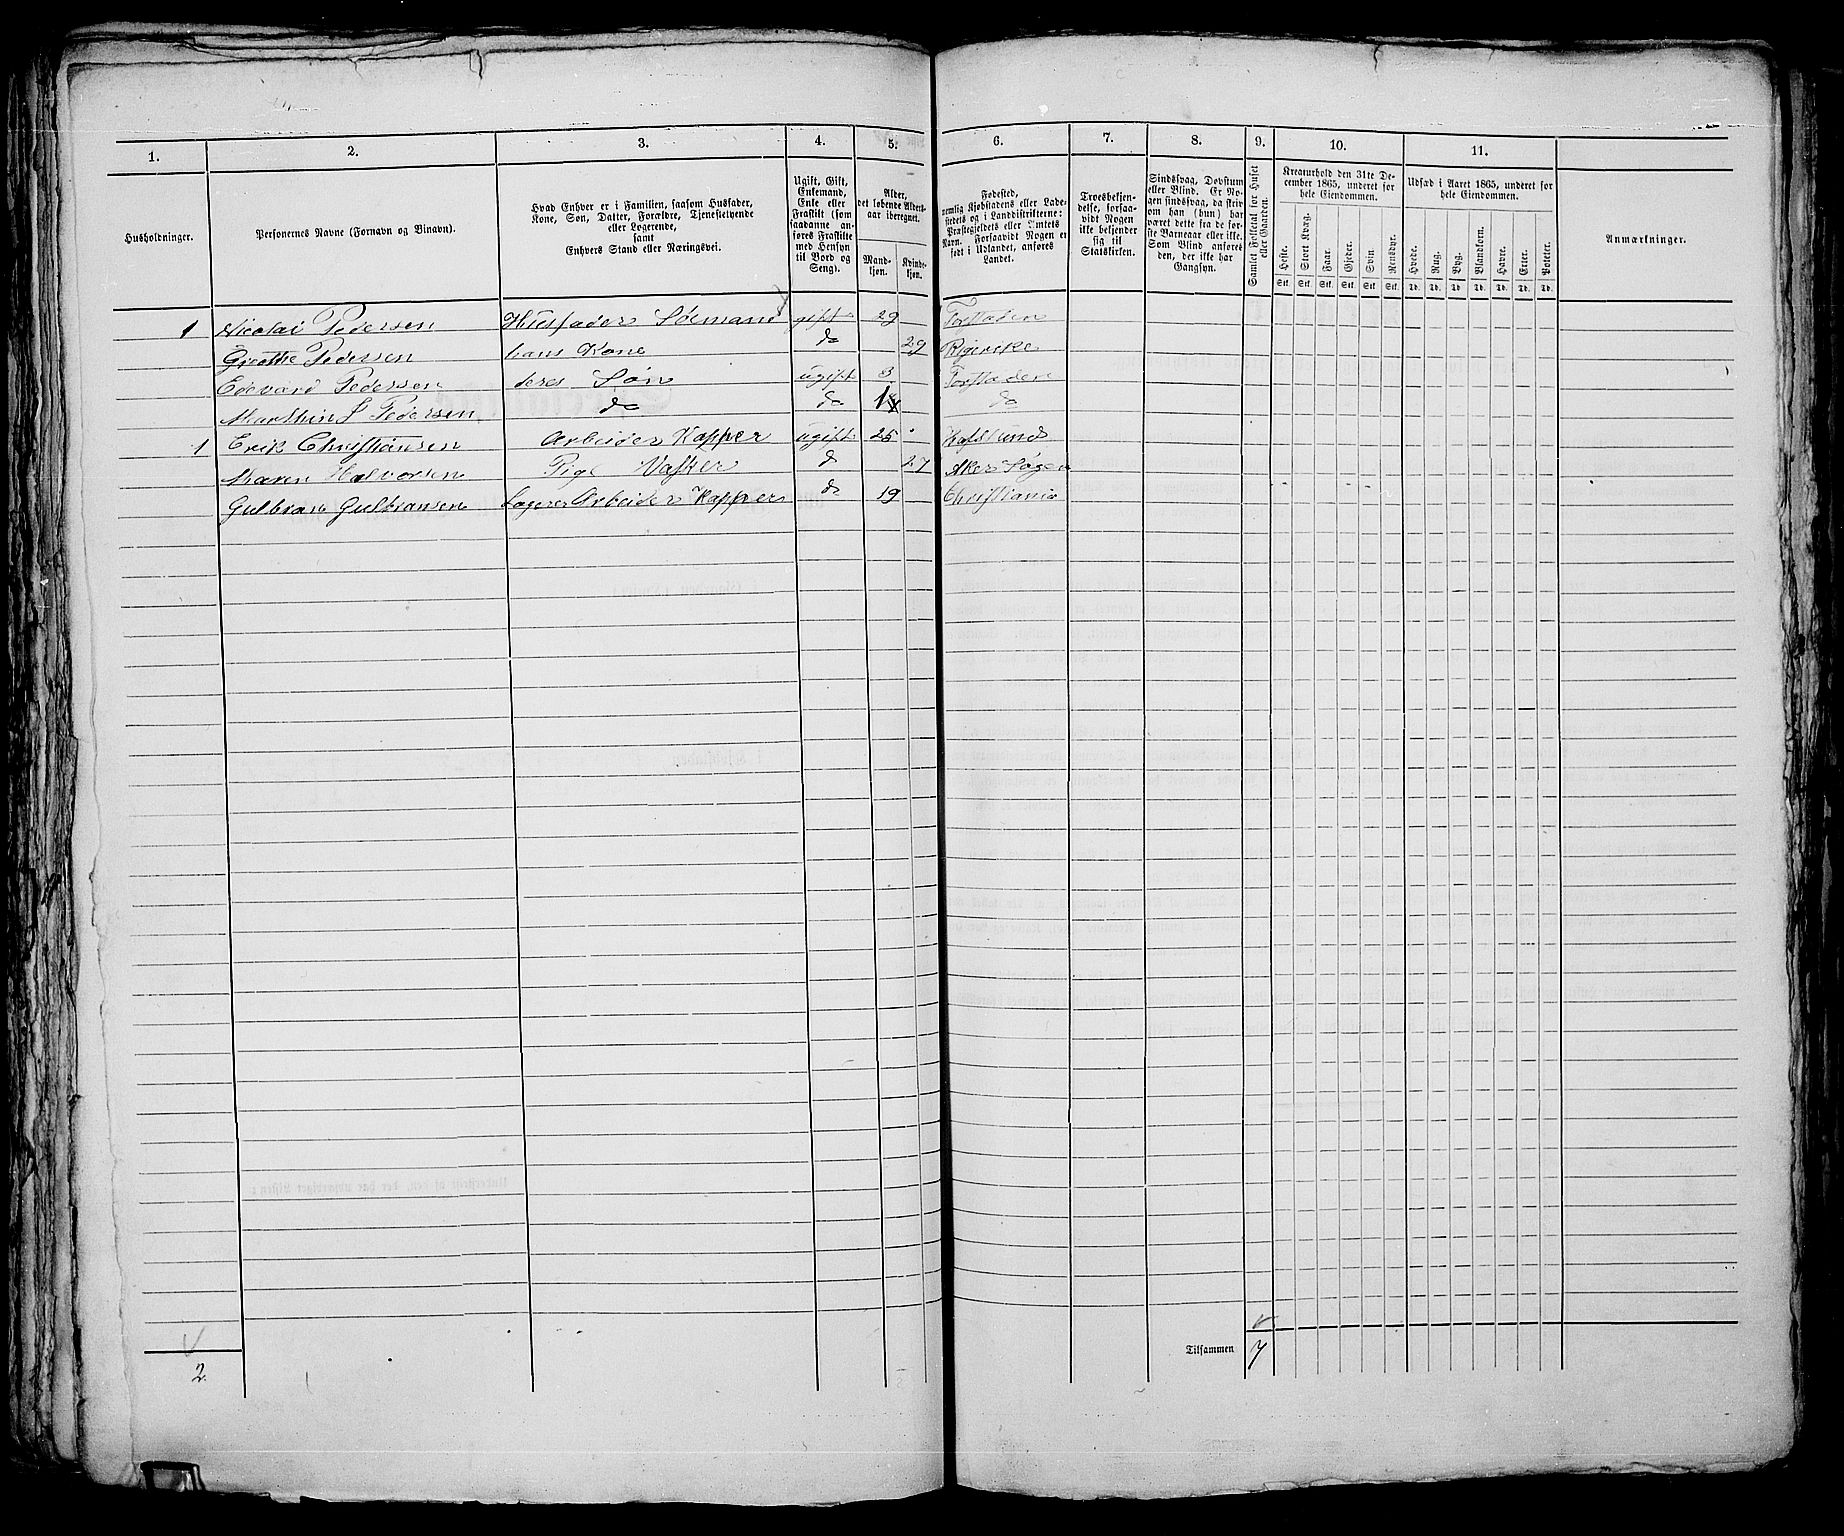 1. 2. 3. 4. 5. 6. 7. 8. 9. 10. 11.
Husholdninger.
Personernes Navne (Fornavn og Binavn).
Hvad Enhver er i Familien, saasom Husfader,
Kone, Søn, Datter, Forældre, Tjenestetyende
eller Logerende,
samt
Enhvers Stand eller Næringsvei.
Ugift, Gift,
Enkemand,
Enke eller
Fraskilt (som
saadanne an-
føres Fraskilte
med Hensyn
til Bord og
Seng).
Alder,
det løbende Alders-
aar iberegnet.
Mand-
kjøn.
Kvinde-
kjøn.
Fødested,
nemlig Kjøbstadens eller Lade-
stedets og i Landdistrikterne:
Præstegjeldets eller Amtets
Navn. Forsaavidt Nogen er
født i Udlandet, anføres
Landet.
Troesbekjen-
delse, forsaa-
vidt Nogen
ikke bekjender
sig til
Statskirken.
Sindssvag, Døvstum
eller Blind. Er No-
gen sindssvag, da skriv
om han (hun) har
været dette fra de før-
ste Barneaar eller ikke.
Som Blind anføres
den, der ikke har
Gangsyn.
Samlet Folketal for Huset
eller Gaarden.
Kreaturhold den 31te De-
cember 1865, underet for
hele Eiendommen.
Heste. Stort Kvæg. Faar. Gjeder. Svin. Rensdyr.
Stk. Stk. Stk. Stk. Stk. Stk.
Udsæd i Aaret 1865, underet for
hele Eiendommen.
Hvede. Rug. Byg. Blandkorn. Havre. Erter. Poteter.
Td. Td. Td. Td. Td. Td. Td.
Anmærkninger.
1 Nicolai Pedersen Husfader Sømand gift 29 Forstaden
Grethe Pedersen hans Kone do 29 Rigerike
Edevard Pedersen deres Søn ugift 3 Forstaden
Marthin Pedersen do do 1 do
1 Erik Christiansen Arbeider Kapper ugift 25 Hafslund
Maren Halvorsen Pige Vasker d 27 Aker Sogn
Gulbran Gulbransen Logerer Arbeider Kapper do 19 Christiania
2
Tilsammen 7